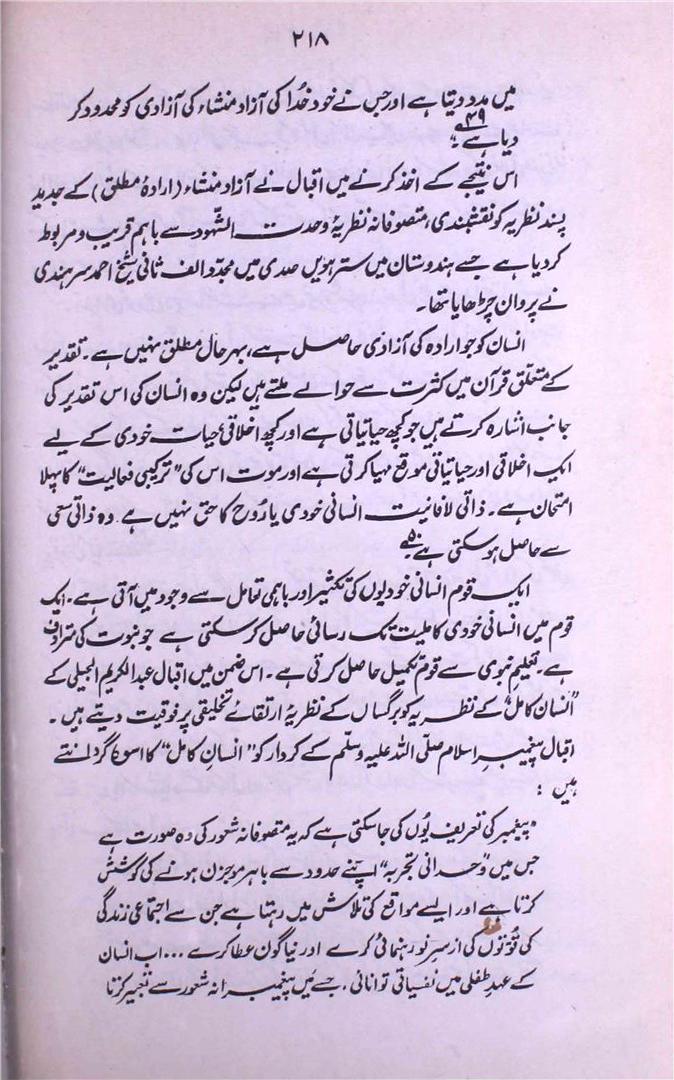 ۲۱۸
میں مدد دیتا ہے اور جس نے خود خدا کی آزاد منشاء کی آزادی کو محدود کر
دیا ہے ۴۹؎
اس نتیجے کے اخذ کرنے میں اقبال نے آزاد منشاء (ارادۂ مطلق) کے جدید
پسند نظریہ کو نقشبندی، متصوفانہ نظریۂ وحدت الشہود سے باہم قریب و مربوط
کر دیا ہے جسے ہندوستان میں سترہویں صدی میں مجدّد الف ثانی شیخ احمد سرہندی
نے پروان چڑھایا تھا۔
انسان کو جو ارادہ کی آزادی حاصل ہے، بہر حال مطلق نہیں ہے۔ تقدیر
کے متعلق قرآن میں کثرت سے حوالے ملتے ہیں لیکن وہ انسان کی اس تقدیر کی
جانب اشارہ کرتے ہیں جو کچھ حیاتیاتی ہے اور کچھ اخلاقی حیات خودی کے لیے
ایک اخلاقی اور حیاتیاتی موقع مہیا کرتی ہے اور موت اس کی "ترکیبی فعالیت" کا پہلا
امتحان ہے۔ ذاتی لافانیت انسانی خودی یا رُوح کا حق نہیں ہے وہ ذاتی سعی
سے حاصل ہو سکتی ہے ۵۰؎
ایک قوم انسانی خودیوں کی تکثیر اور باہمی تعامل سے وجود میں آتی ہے۔ ایک
قوم میں انسانی خودی کاملیت تک رسائی حاصل کر سکتی ہے جو نبوت کی مترادف
ہے۔ تعلیم نبوی سے قوم تکمیل حاصل کرتی ہے۔ اس ضمن میں اقبال عبدالکریم الجیلی کے
"انسان کامل" کے نظریہ کو برگساں کے نظریۂ ارتقائے تخلیقی پر فوقیت دیتے ہیں۔
اقبال پیغمبر اسلام صلّی اللہ علیہ وسلّم کے کردار کو "انسانِ کامل" کا اسوہ گردانتے
ہیں :
"پیغمبر کی تعریف یُوں کی جا سکتی ہے کہ یہ متصوفانہ شعور کی وہ صورت ہے
جس میں "وحدانی تجربہ" اپنے حدود سے باہر موجزن ہونے کی کوشش
کرتا ہے اور ایسے مواقع کی تلاش میں رہتا ہے جن سے اجتماعی زندگی
کی قُوّتوں کی از سرِ نو رہنمائی کرے اور نیا گون عطا کرے ... اب انسان
کے عہدِ طفلی میں نفسیاتی توانائی، جسے میں پیغمبرانہ شعور سے تعبیر کرتا